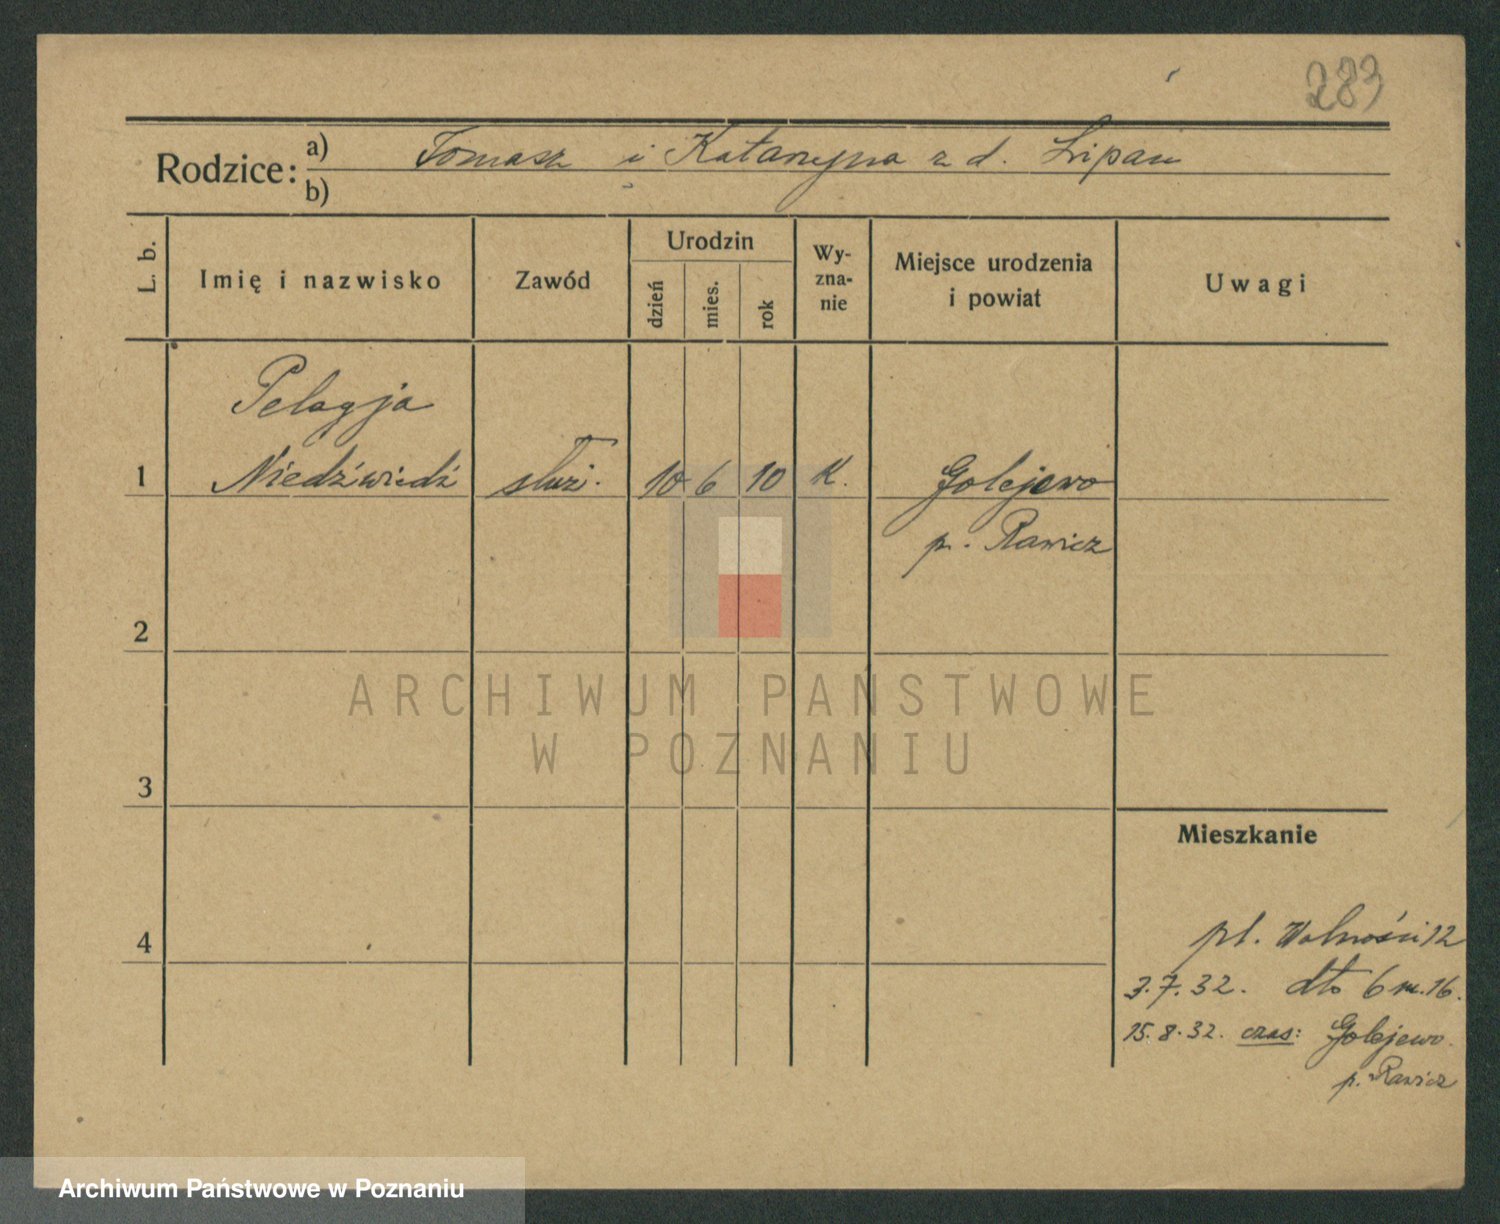 283
Rodzice: a) Tomasz i Katarzyna z d. Lipan
b)
L. b.
Imię i nazwisko
Zawód
Urodzin
dzień
mies.
rok
Wy-
zna-
nie
Miejsce urodzenia
i powiat
Uwagi
Pelagja
1 Niedźwiedź służ. 10 6 10 K. Golejewo
p. Rawicz
2
ARCHIWUM PAŃSTWOWE
W POZNANIU
3
Mieszkanie
4
pl. Wolności 12
3.7.32. dto 6 m. 16.
15.8.32. czas: Golejewo.
p. Rawicz
Archiwum Państwowe w Poznaniu